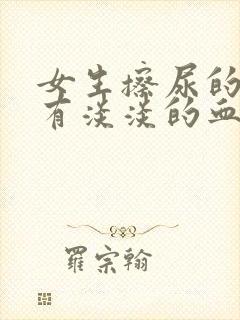 女生擦尿的
有淡淡的血
羅宗翰